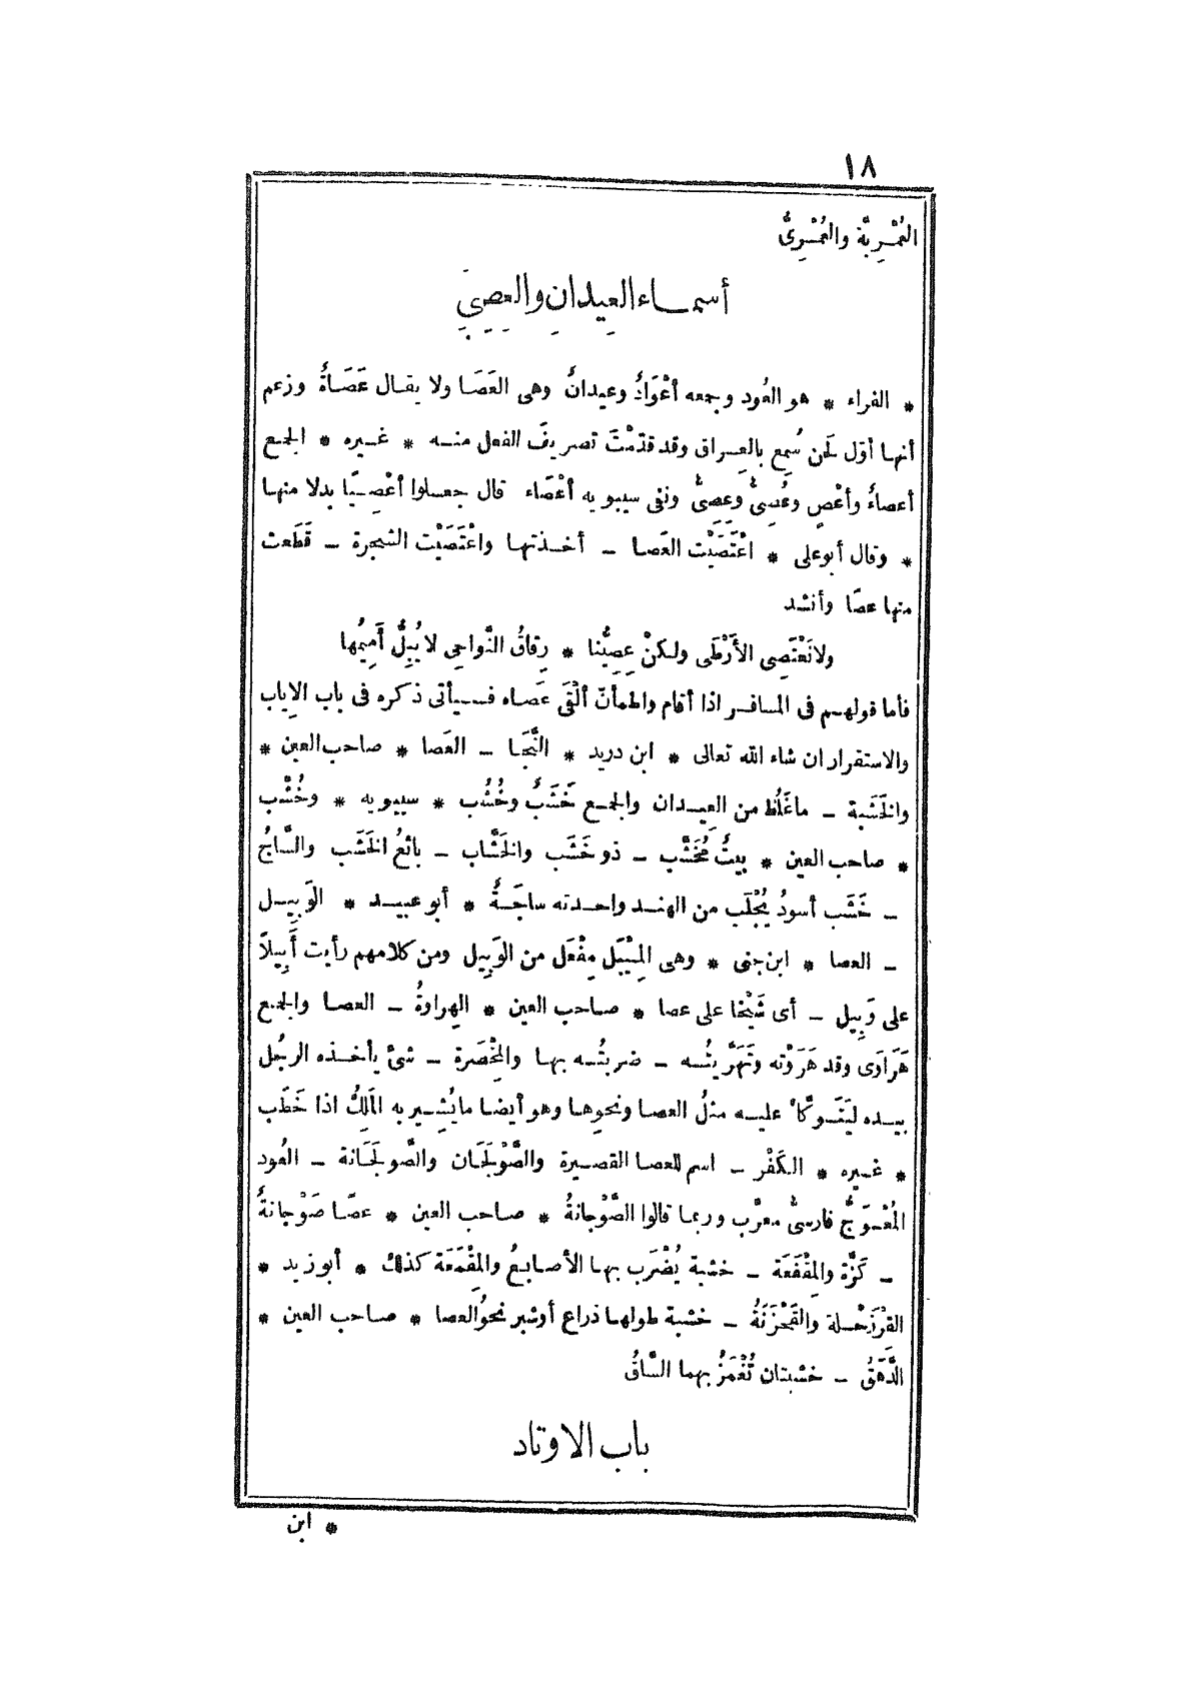 ١٨
العُمْرِيَّة والعُمْرِىُّ
أسماء العِيدانِ والعِصِيِّ
* الفراء * هو العُود وجمعه أعْوَادٌ وعِيدانٌ وهى العَصَا ولا يقال عَصَاةٌ وزعم
أنها أوّل لَحْن سُمِع بالعِراق وقد قدّمْتَ تصريفَ الفعل منه * غيره * الجمع
أعصاءٌ وأعْصٍ وعُصِىٌّ وعِصِىٌّ ونفى سيبويه أعْصَاء قال جعلوا أعْصِيًا بدلا منها
* وقال أبو على * اعْتَصَيْت العَصا - أخذتها واعْتَصَيْت الشجرة - قَطَعت
منها عصًا وأنشد
ولا نَعْتَصِى الأَرْطَى ولكنْ عِصِيُّنا * رِقاقُ النَّواحِى لا يُبِلُّ أَمِيمُها
فأما قولهم فى المسافر اذا أقام واطمأنّ ألْقَى عَصاه فسيأتى ذكره فى باب الإياب
والاستقرار ان شاء الله تعالى * ابن دريد * النَّجَا - العَصا * صاحب العين *
والخَشَبة - ما غَلُظ من العِيدان والجمع خَشَبٌ وخُشُب * سيبويه * وخُشْب
* صاحب العين * بيتٌ مُخَشَّب - ذو خَشَب والخَشَّاب - بائعُ الخَشَب والسَّاجُ
- خَشَب أسودُ يُجْلَب من الهند واحدته ساجَةٌ * أبو عبيد * الوَبِيل
- العصا * ابن جنى * وهى المِيْبَل مِفْعَل من الوَبِيل ومن كلامهم رأيت أَبِيلاً
على وَبِيل - أى شَيْخا على عصا * صاحب العين * الهِراوةُ - العصا والجمع
هَرَاوَى وقد هَرَوْته وتَهَرَّيْتُه - ضربتُه بها والمِخْصَرة - شئ يأخذه الرجُل
بيده ليَتَوكَّأ عليه مثلُ العصا ونحوِها وهو أيضا ما يُشِير به المَلِكُ اذا خَطَب
* غيره * الكَفْر - اسم للعصا القصيرة والصَّوْلَجَان والصَّولَجَانة - العُود
المُعْوَجُّ فارسىٌّ معرَّب وربما قالوا الصَّوْجانةُ * صاحب العين * عصًا صَوْجانةٌ
- كَزَّة والمِقْفَعَة - خشبة يُضْرَب بها الأصابعُ والمِقْمَعَة كذلك * أبو زيد *
القِرْزَحْلة والقَحْزَنَةُ - خشبة طولها ذراع أو شبر نحوُ العصا * صاحب العين *
الدَّهَقُ - خشبتان تُغْمَزُ بهما السَّاقُ
باب الاوتاد
* ابن